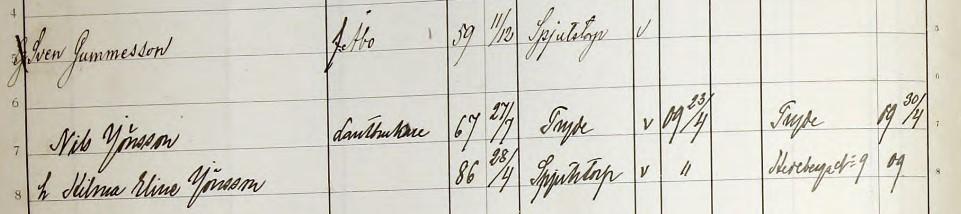 4
5 Sven Gummesson f. Åbo 59 11/12 Spjutstorp v 5
6 6
7 Nils Jönsson Lantbrukare 67 27/7 Tryde v 09 23/4 Tryde 09 30/4 7
8 h Hilma Eline Jönsson 86 28/4 Spjutstorp v " 9 09 8